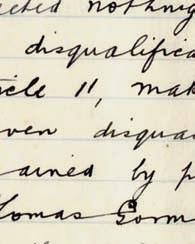 ected nothing
disqualifica
icle 11, mak
ven disqua
ained by p
homas Gorm